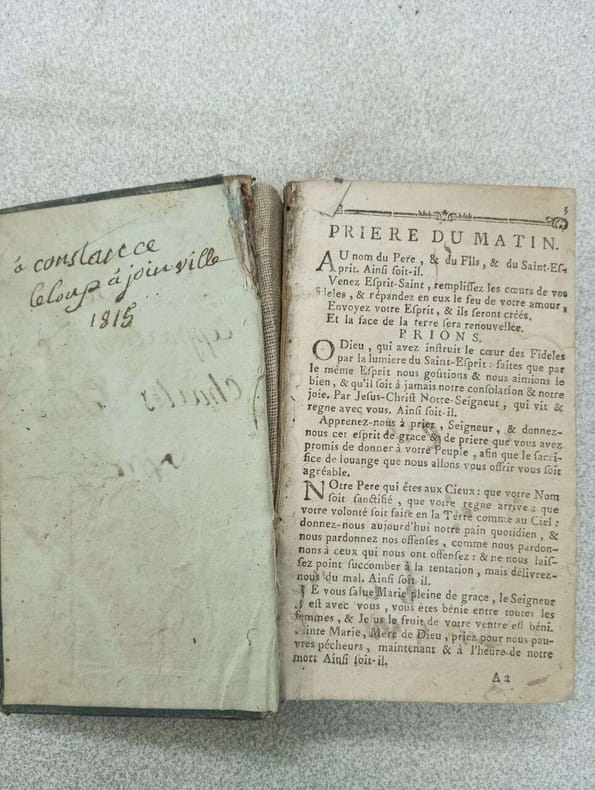 à constance
leloup à joinville
1815
3
PRIERE DU MATIN.
AU nom du Pere, & du Fils, & du Saint-Es-
prit. Ainsi soit-il.
Venez Esprit-Saint, remplissez les cœurs de vos
Fideles, & répandez en eux le feu de votre amour,
Envoyez votre Esprit, & ils seront créés,
Et la face de la terre sera renouvellée.
PRIONS.
O Dieu, qui avez instruit le cœur des Fideles
par la lumiere du Saint-Esprit: faites que par
le même Esprit nous goûtions & nous aimions le
bien, & qu'il soit à jamais notre consolation & notre
joie. Par Jesus-Christ Notre-Seigneur, qui vit &
regne avec vous. Ainsi soit-il.
Apprenez-nous à prier, Seigneur, & donnez-
nous cet esprit de grace & de priere que vous avez
promis de donner à votre Peuple, afin que le sacri-
fice de louange que nous allons vous offrir vous soit
agréable.
NOtre Pere qui êtes aux Cieux: que votre Nom
soit sanctifié, que votre regne arrive: que
votre volonté soit faite en la Terre comme au Ciel:
donnez-nous aujourd'hui notre pain quotidien, &
nous pardonnez nos offenses, comme nous pardon-
nons à ceux qui nous ont offensez: & ne nous lais-
sez point succomber à la tentation, mais délivrez-
nous du mal. Ainsi soit il.
JE vous salue Marie pleine de grace, le Seigneur
est avec vous, vous êtes bénie entre toutes les
femmes, & Jesus le fruit de votre ventre est béni.
Sainte Marie, Mere de Dieu, priez pour nous pau-
vres pécheurs, maintenant & à l'heure de notre
mort Ainsi soit-il.
A 2